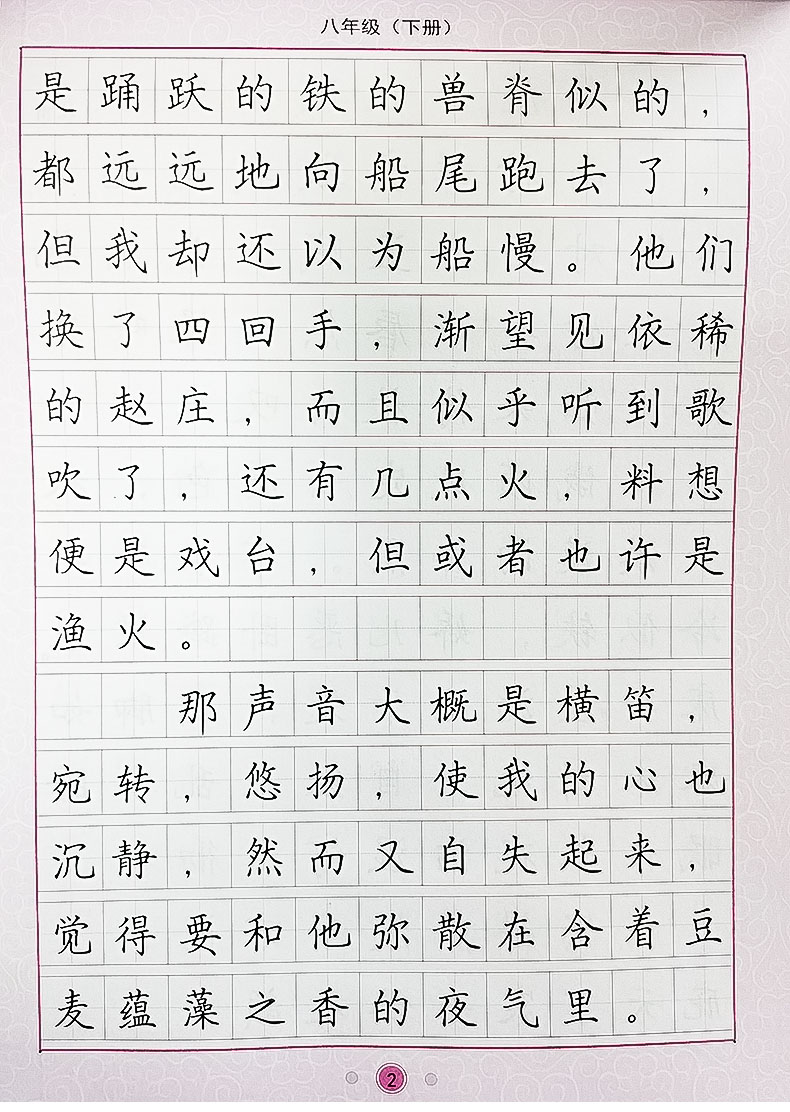 八年级（下册）
是踊跃的铁的兽脊似的，
都远远地向船尾跑去了，
但我却还以为船慢。他们
换了四回手，渐望见依稀
的赵庄，而且似乎听到歌
吹了，还有几点火，料想
便是戏台，但或者也许是
渔火。
那声音大概是横笛，
宛转，悠扬，使我的心也
沉静，然而又自失起来，
觉得要和他弥散在含着豆
麦蕴藻之香的夜气里。
2